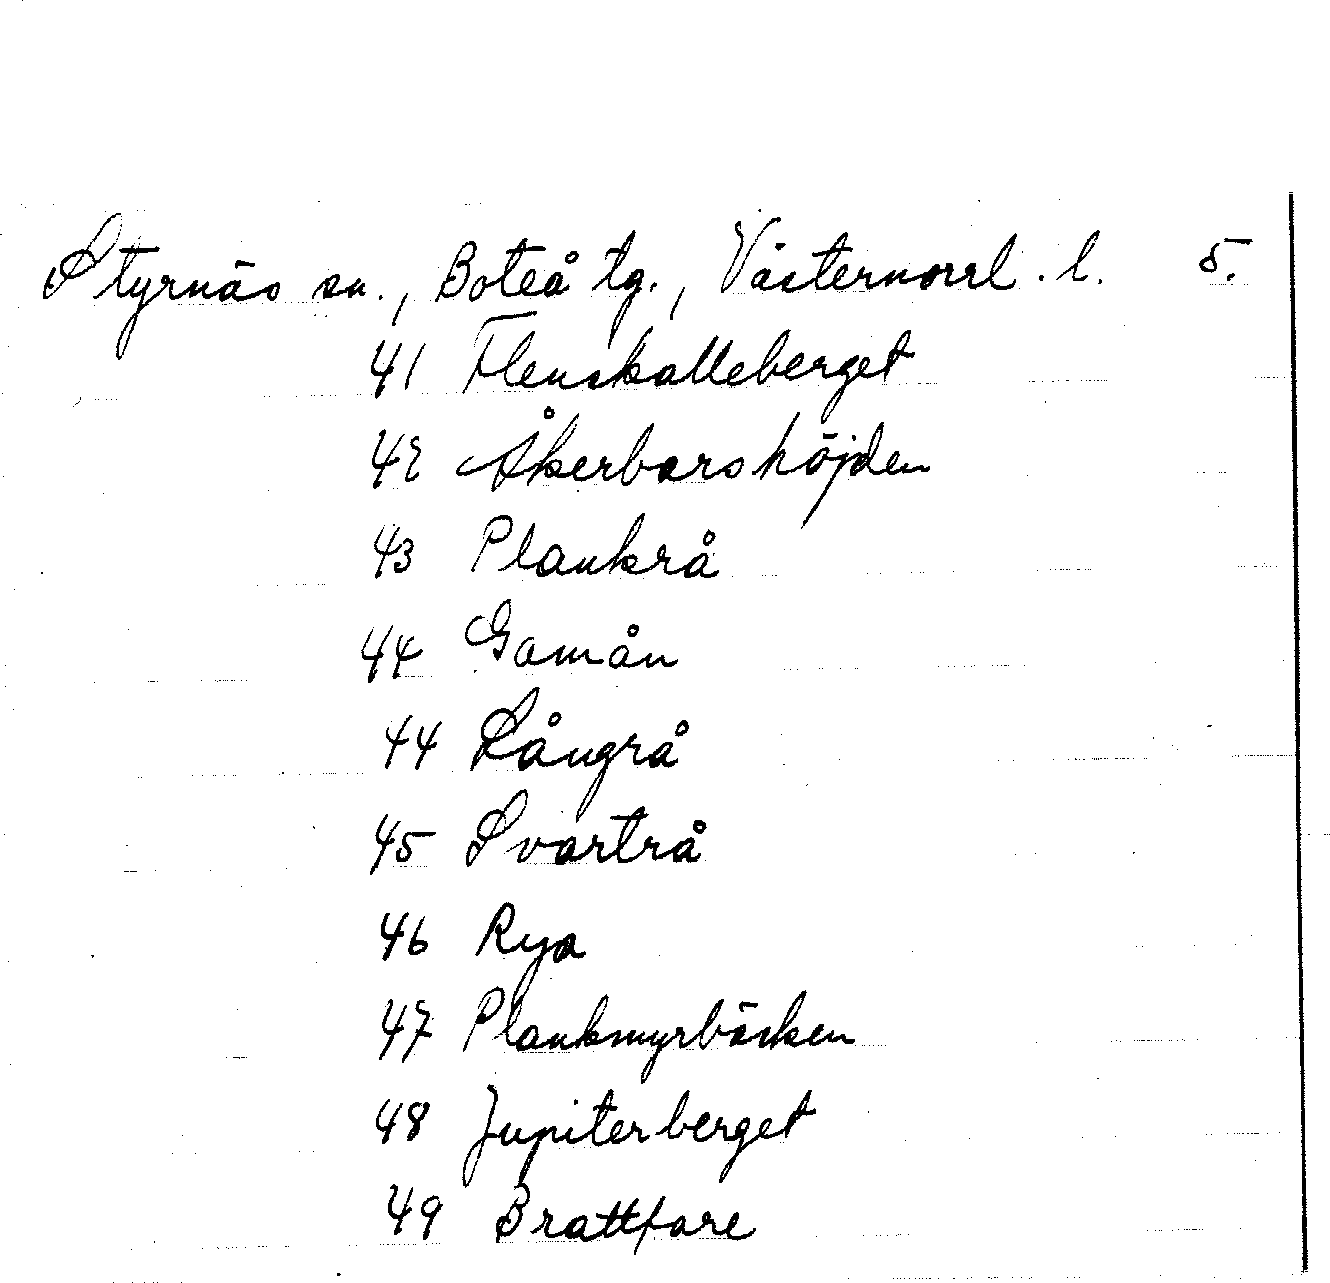 Styrnäs sn., Boteå tg., Västernorrl. l. 5.
41 Flenskalleberget
42 Åkerbarshöjden
43 Plankrå
44 Gamån
44 Långrå
45 Svartrå
46 Rya
47 Plankmyrbäcken
48 Jupiterberget
49 Brattfare